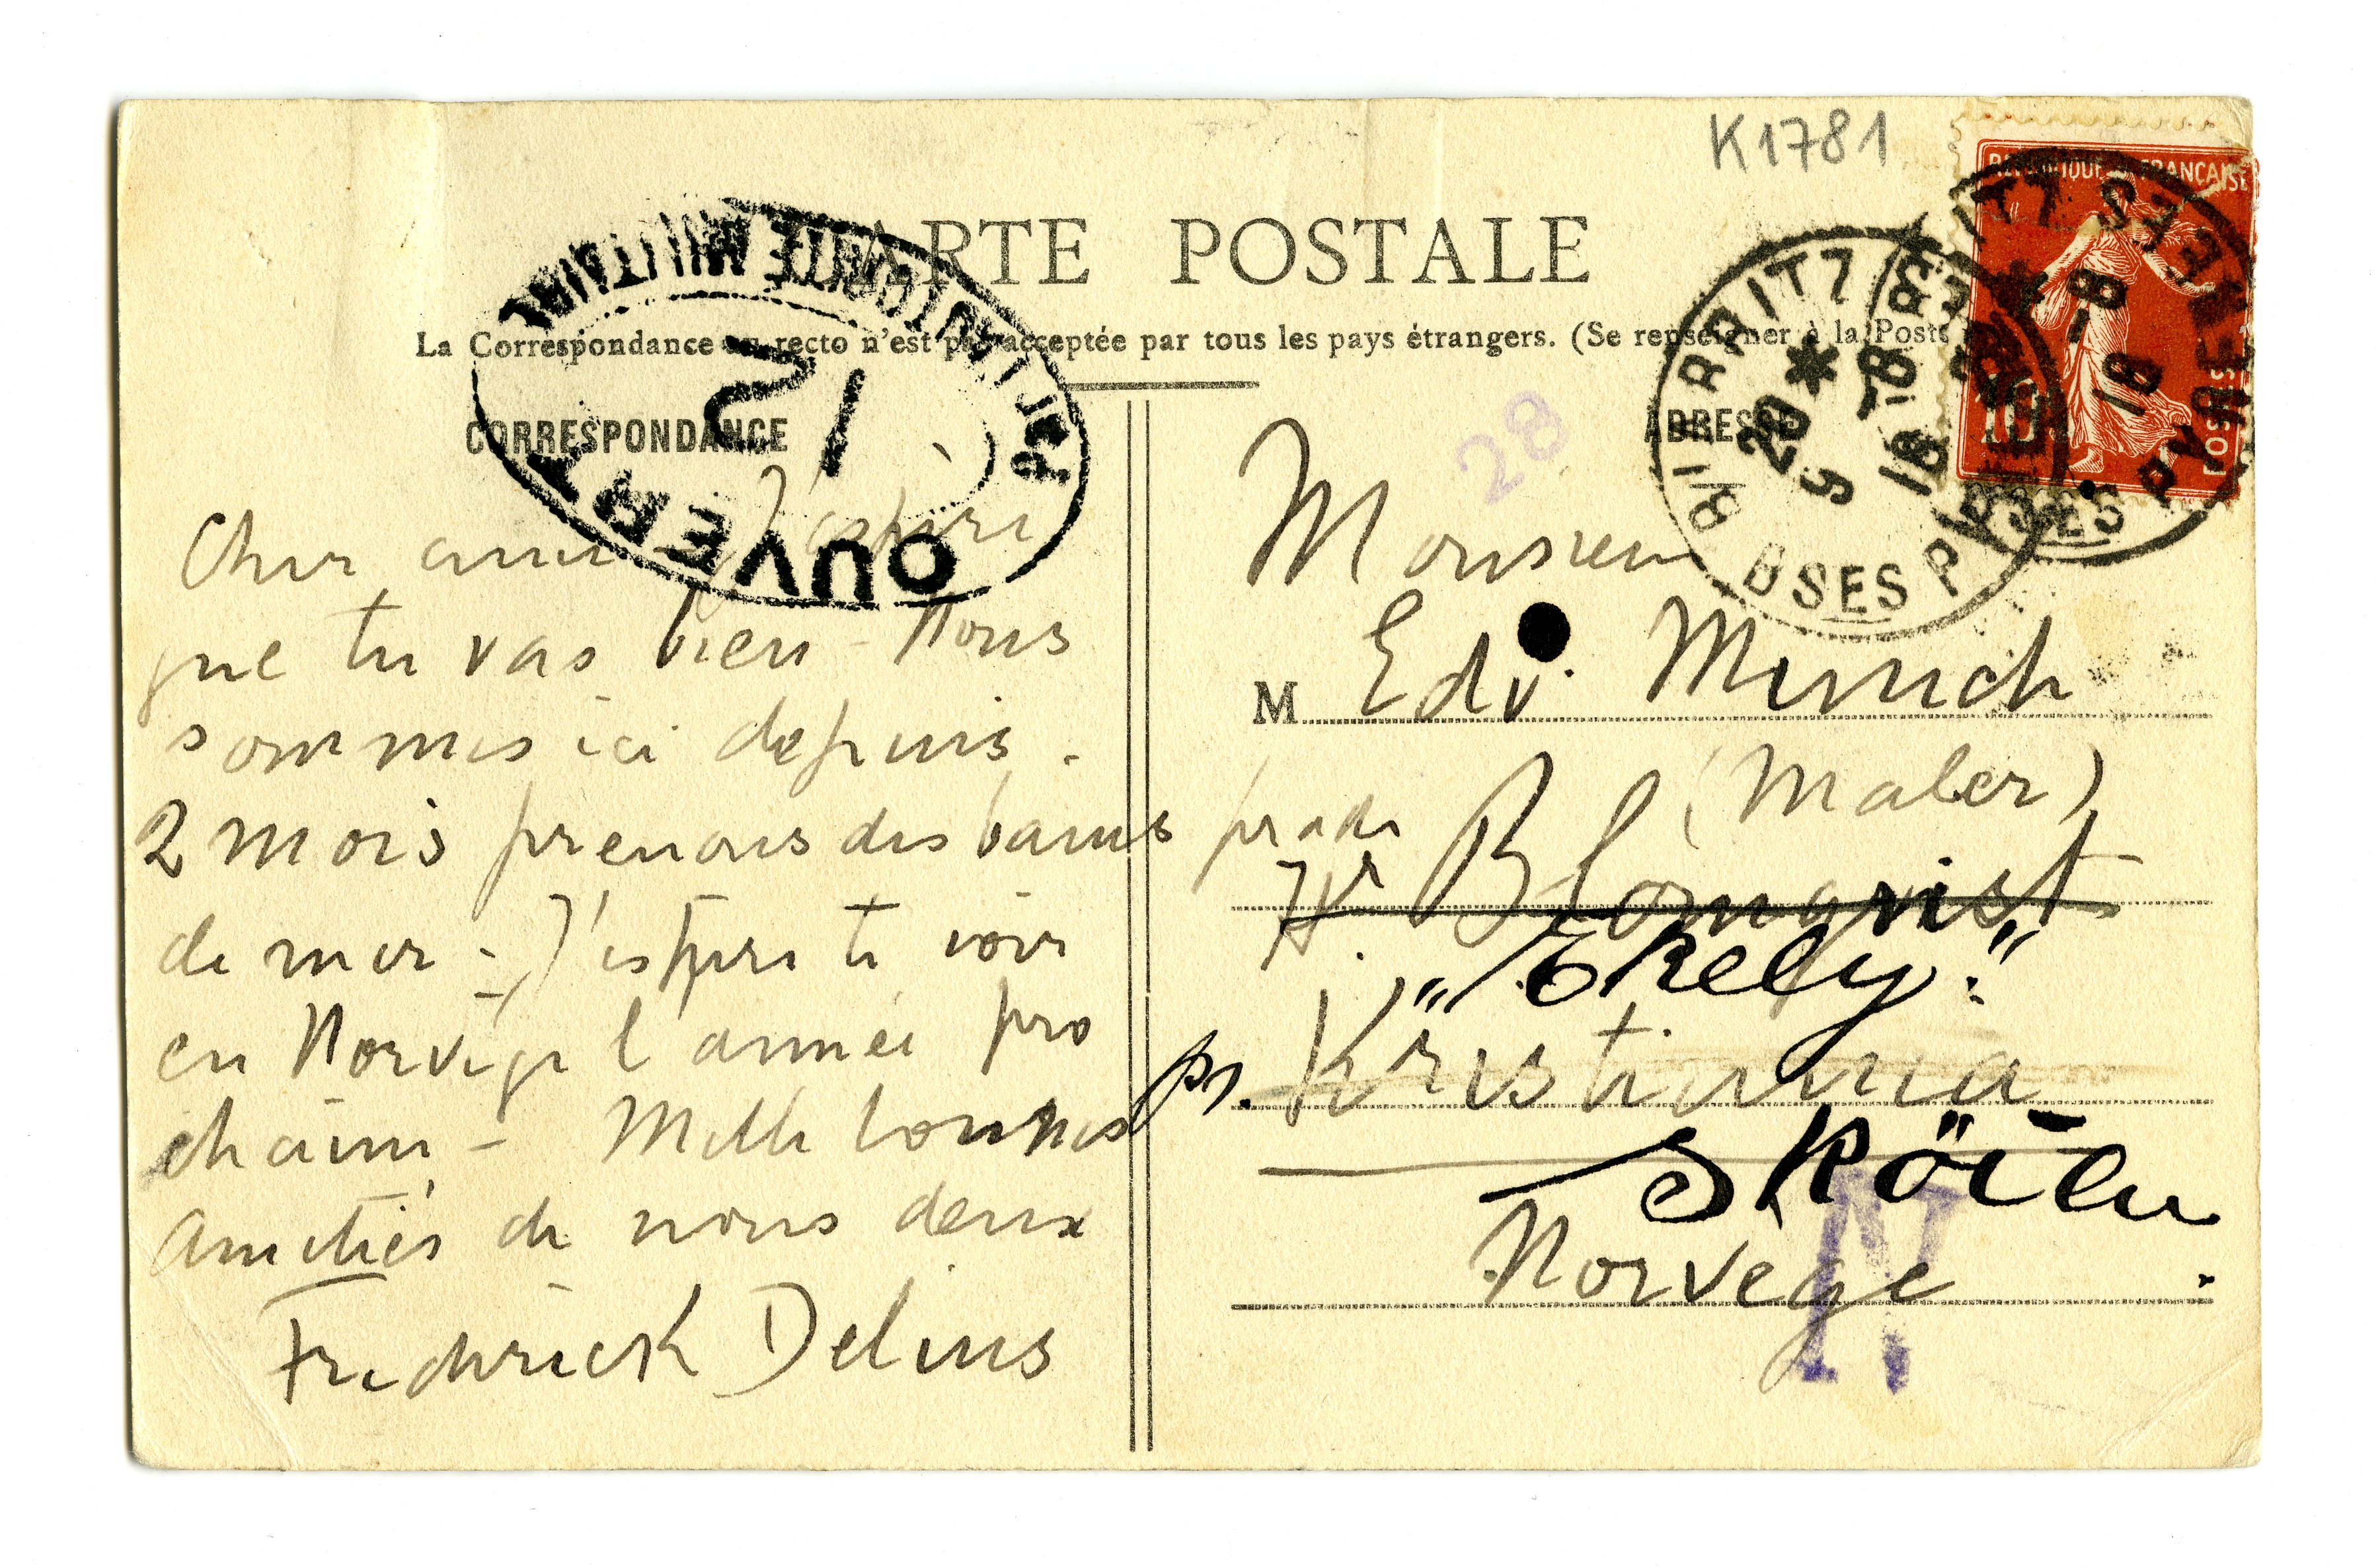 K1781
CARTE POSTALE
La Correspondance au recto n'est pas acceptée par tous les pays étrangers. (Se renseigner à la Poste
CORRESPONDANCE
ADRESSE
OUVERT
PAR L'AUTORITÉ MILITAIRE
REPUBLIQUE FRANÇAISE
POSTES
10
BIARRITZ
BSES PYRENEES
20 * 5
-8 18
28
Cher ami - J'espère
que tu vas bien - Nous
sommes ici depuis
2 mois prenons des bains
de mer - J'espère te voir
en Norvège l'année pro
chaine - Mille bonnes
amitiés de nous deux
Frederick Delius
Monsieur
M Edv. Munch
(Maler)
Hr Blomqvist
"Ekely"
pr. Kristiania
Sköien
Norvège
T